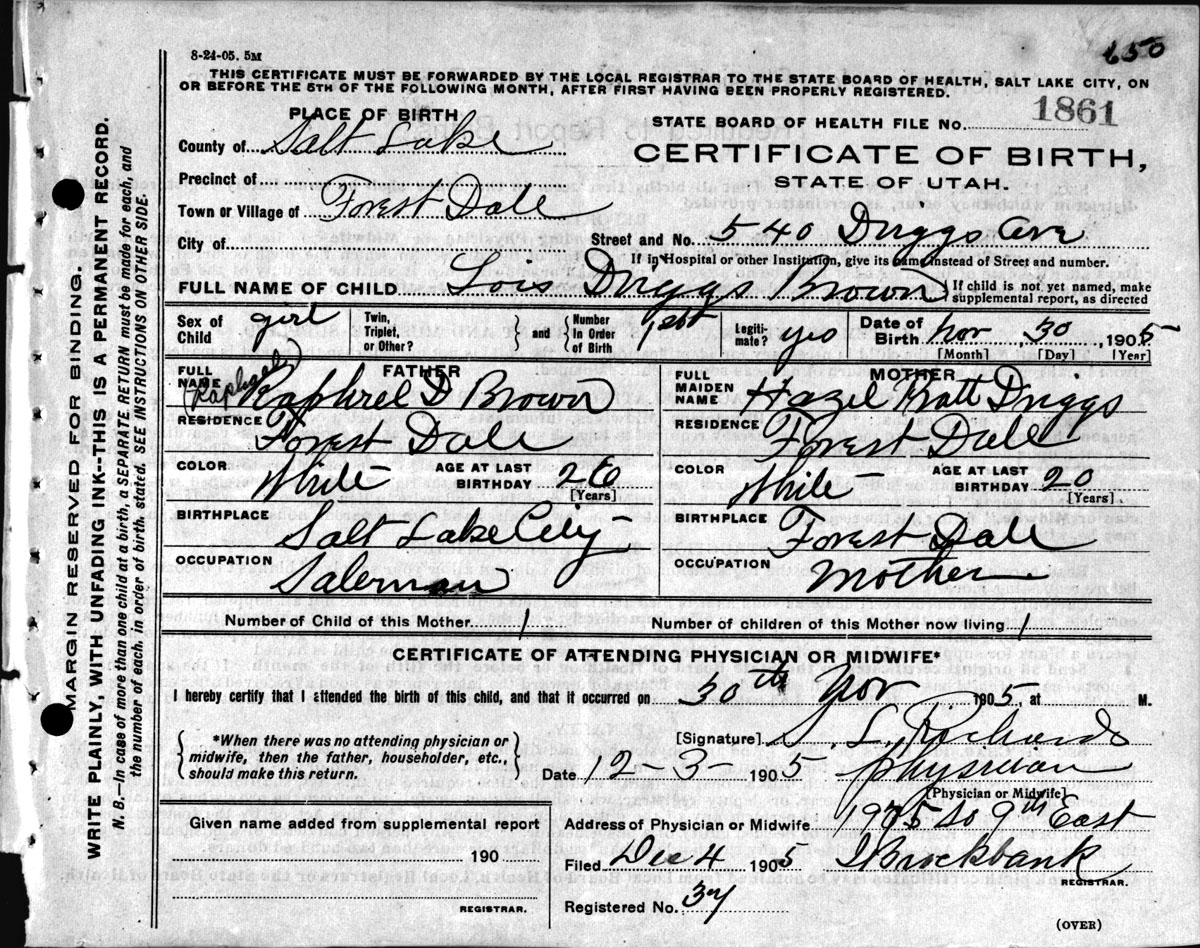 650
8-24-05. 5M
THIS CERTIFICATE MUST BE FORWARDED BY THE LOCAL REGISTRAR TO THE STATE BOARD OF HEALTH, SALT LAKE CITY, ON
OR BEFORE THE 5TH OF THE FOLLOWING MONTH, AFTER FIRST HAVING BEEN PROPERLY REGISTERED.
PLACE OF BIRTH
County of Salt Lake
Precinct of
Town or Village of Forest Dale
City of
STATE BOARD OF HEALTH FILE No. 1861
CERTIFICATE OF BIRTH,
STATE OF UTAH.
Street and No. 540 Driggs Ave
If in Hospital or other Institution, give its name instead of Street and number.
FULL NAME OF CHILD Lois Driggs Brown
If child is not yet named, make
supplemental report, as directed
Sex of Child girl Twin, Triplet, or Other? and Number In Order of Birth 1st Legitimate? yes Date of Birth Nov 30 1905
[Month] [Day] [Year]
FATHER
FULL NAME Raphael D Brown
RESIDENCE Forest Dale
COLOR White AGE AT LAST BIRTHDAY 26
[Years]
BIRTHPLACE Salt Lake City
OCCUPATION Salesman
MOTHER
FULL MAIDEN NAME Hazel Pratt Driggs
RESIDENCE Forest Dale
COLOR White AGE AT LAST BIRTHDAY 20
[Years]
BIRTHPLACE Forest Dale
OCCUPATION Mother
Number of Child of this Mother 1 Number of children of this Mother now living 1
CERTIFICATE OF ATTENDING PHYSICIAN OR MIDWIFE*
I hereby certify that I attended the birth of this child, and that it occurred on 30th Nov 1905, at M.
*When there was no attending physician or
midwife, then the father, householder, etc.,
should make this return.
[Signature] S. L. Richards
Date 12-3- 1905 physician
[Physician or Midwife]
Given name added from supplemental report
190
REGISTRAR.
Address of Physician or Midwife 1975 So 9th East
Filed Dec 4 1905 Brockbank
REGISTRAR.
Registered No. 37
(OVER)
MARGIN RESERVED FOR BINDING.
WRITE PLAINLY, WITH UNFADING INK--THIS IS A PERMANENT RECORD.
N. B.—In case of more than one child at a birth, a SEPARATE RETURN must be made for each, and
the number of each, in order of birth, stated. SEE INSTRUCTIONS ON OTHER SIDE.